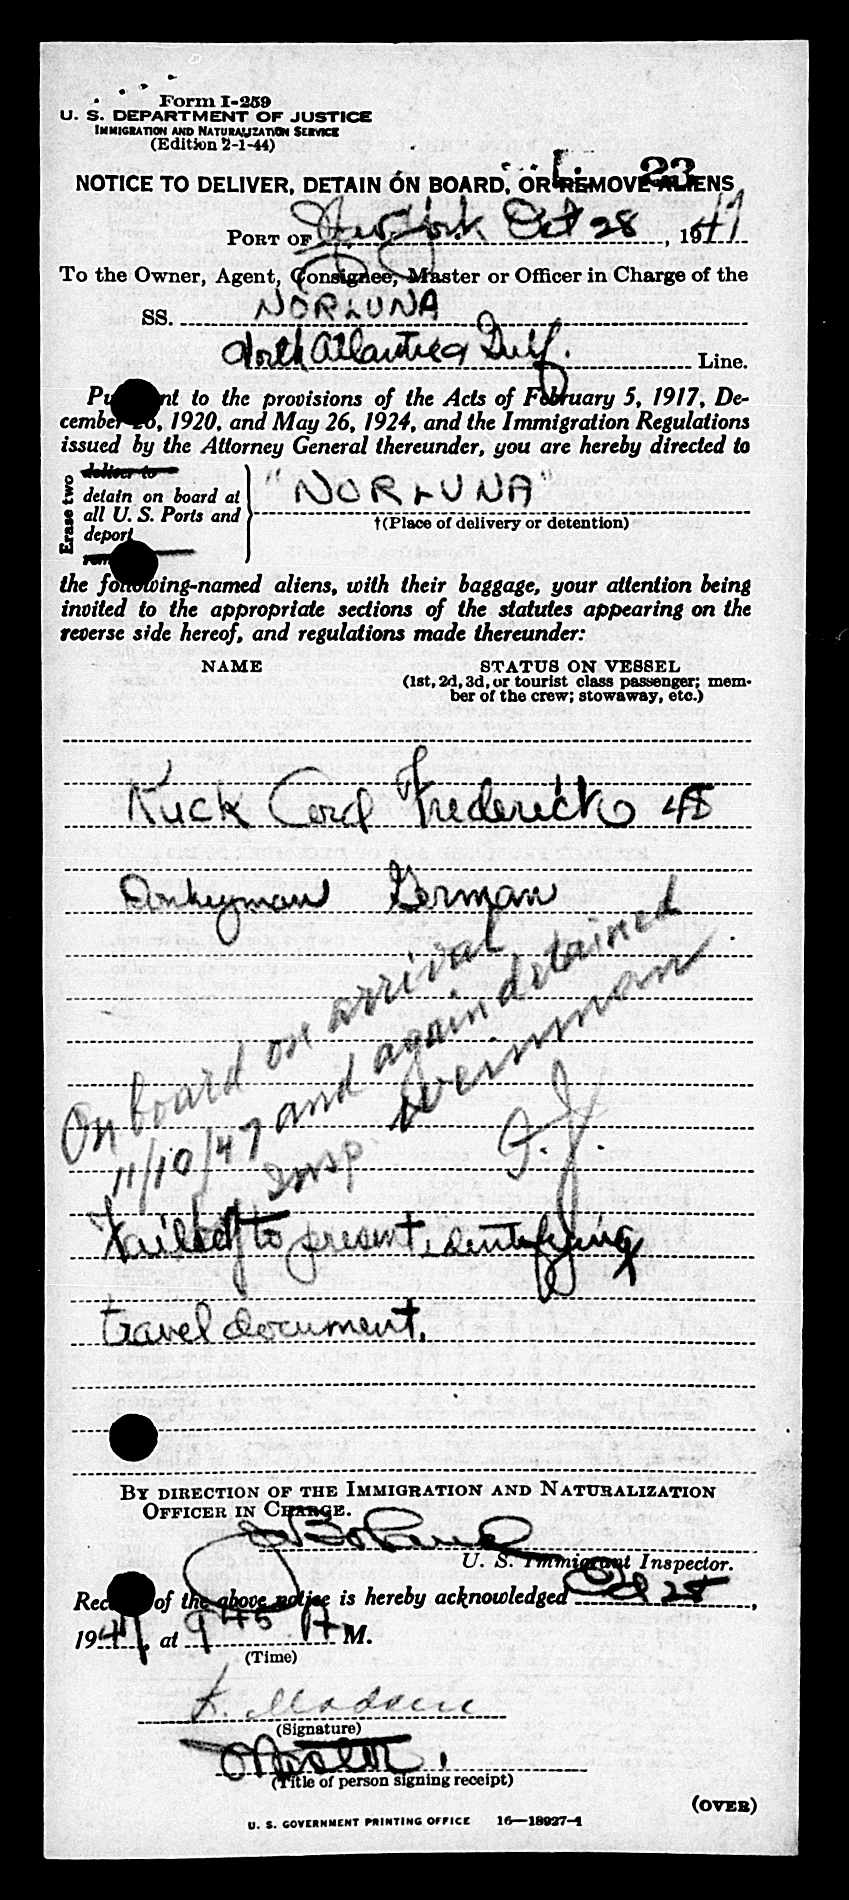 Form I-259
U. S. DEPARTMENT OF JUSTICE
IMMIGRATION AND NATURALIZATION SERVICE
(Edition 2-1-44)
23
NOTICE TO DELIVER, DETAIN ON BOARD, OR REMOVE ALIENS
PORT OF New York Oct 28, 1947
To the Owner, Agent, Consignee, Master or Officer in Charge of the
SS. NORLUNA
North Atlantic & Gulf. Line.
Pu nt to the provisions of the Acts of February 5, 1917, De-
cember 26, 1920, and May 26, 1924, and the Immigration Regulations
issued by the Attorney General thereunder, you are hereby directed to
Erase two
deliver to
detain on board at
all U. S. Ports and
deport
"NORLUNA"
†(Place of delivery or detention)
the following-named aliens, with their baggage, your attention being
invited to the appropriate sections of the statutes appearing on the
reverse side hereof, and regulations made thereunder:
NAME STATUS ON VESSEL
(1st, 2d, 3d, or tourist class passenger; mem-
ber of the crew; stowaway, etc.)
Kuck Cord Frederick 48
Donkeyman German
On board on arrival
11/10/47 and again detained
Insp. Weinman
Failed to present identifying
travel document.
BY DIRECTION OF THE IMMIGRATION AND NATURALIZATION
OFFICER IN CHARGE.
U. S. Immigrant Inspector.
Rec of the above notice is hereby acknowledged Oct 28,
1947, at 9 45 A M.
(Time)
K. Madsen
(Signature)
(Title of person signing receipt)
(OVER)
U. S. GOVERNMENT PRINTING OFFICE 16—18927-1